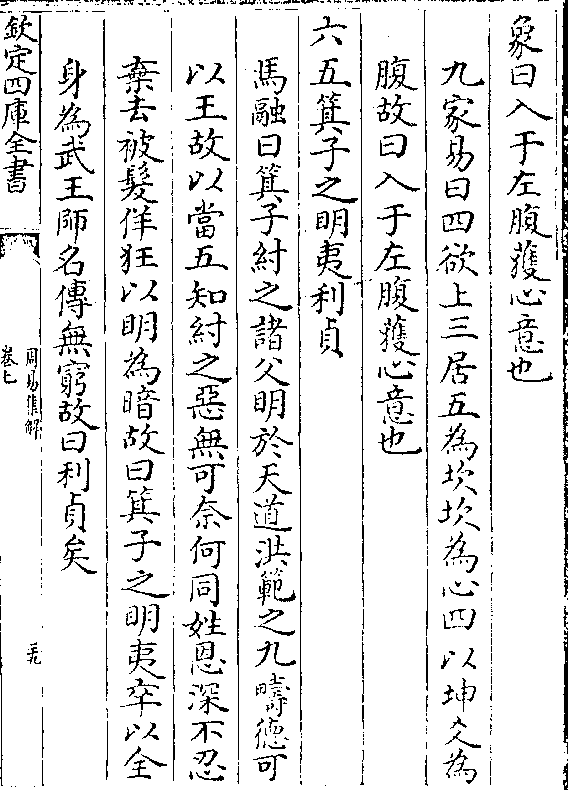 象曰入于左腹獲心意也
九家易曰四欲上三居五為坎坎為心四以坤爻為
腹故曰入于左腹獲心意也
六五箕子之明夷利貞
馬融曰箕子紂之諸父明於天道洪範之九疇德可
以王故以當五知紂之惡無可奈何同姓恩深不忍
棄去被髮佯狂以明為暗故曰箕子之明夷卒以全
身為武王師名傳無窮故曰利貞矣
欽定四庫全書
周易集解
卷七
三九